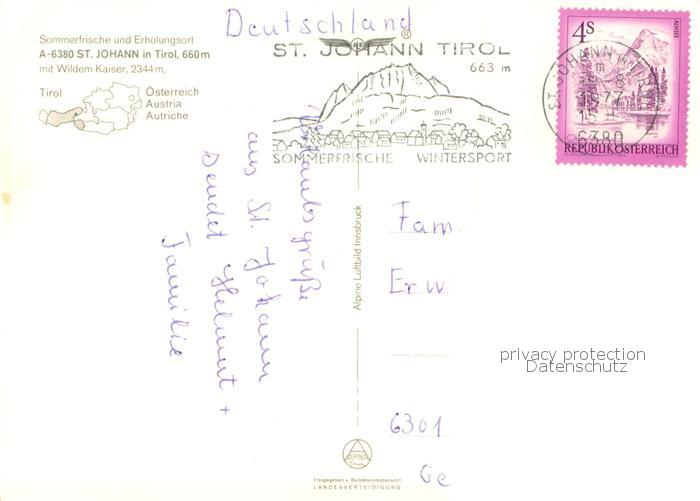 Deutschland
Sommerfrische und Erholungsort
A-6380 ST. JOHANN in Tirol, 660m
mit Wildem Kaiser, 2344m,
Tirol
Österreich
Austria
Autriche
ST. JOHANN TIROL
663 m
SOMMERFRISCHE WINTERSPORT
4S
ALMSEE
REPUBLIK ÖSTERREICH
ST. JOHANN
77
6380
Urlaubsgrüße
aus St. Johann
sendet Helmut +
Familie
Alpine Luftbild Innsbruck
Fam.
Erw
6301
Ge
privacy protection
Datenschutz
ALPINE
Freigegeben v. Bundesministerium f.
LANDESVERTEIDIGUNG